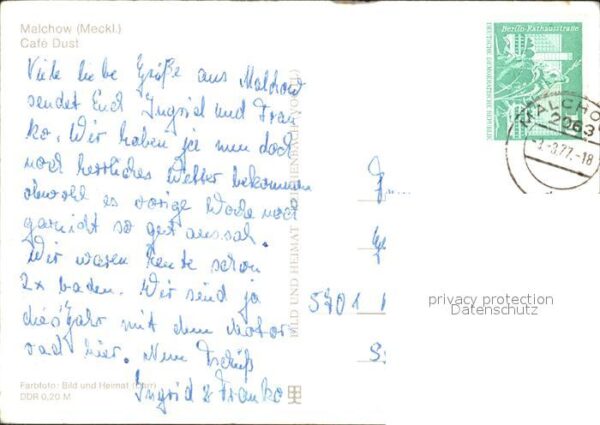 Malchow (Meckl.)
Café Dust
Viele liebe Grüße aus Malchow
sendet Euch Ingrid und Fran
ko. Wir haben ja nun doch
noch herrliches Wetter bekommen
obwohl es vorige Woche noch
garnicht so gut aussah.
Wir waren heute schon
2x baden. Wir sind ja
dies Jahr mit dem Motor
rad hier. Nun Tschüß
Ingrid & Franko
Farbfoto: Bild und Heimat
DDR 0,20 M
BILD UND HEIMAT REICHENBACH (VOGTL)
Berlin-Rathausstraße
DEUTSCHE DEMOKRATISCHE REPUBLIK
MALCHO
2063
.77.-18
5701
privacy protection
Datenschutz